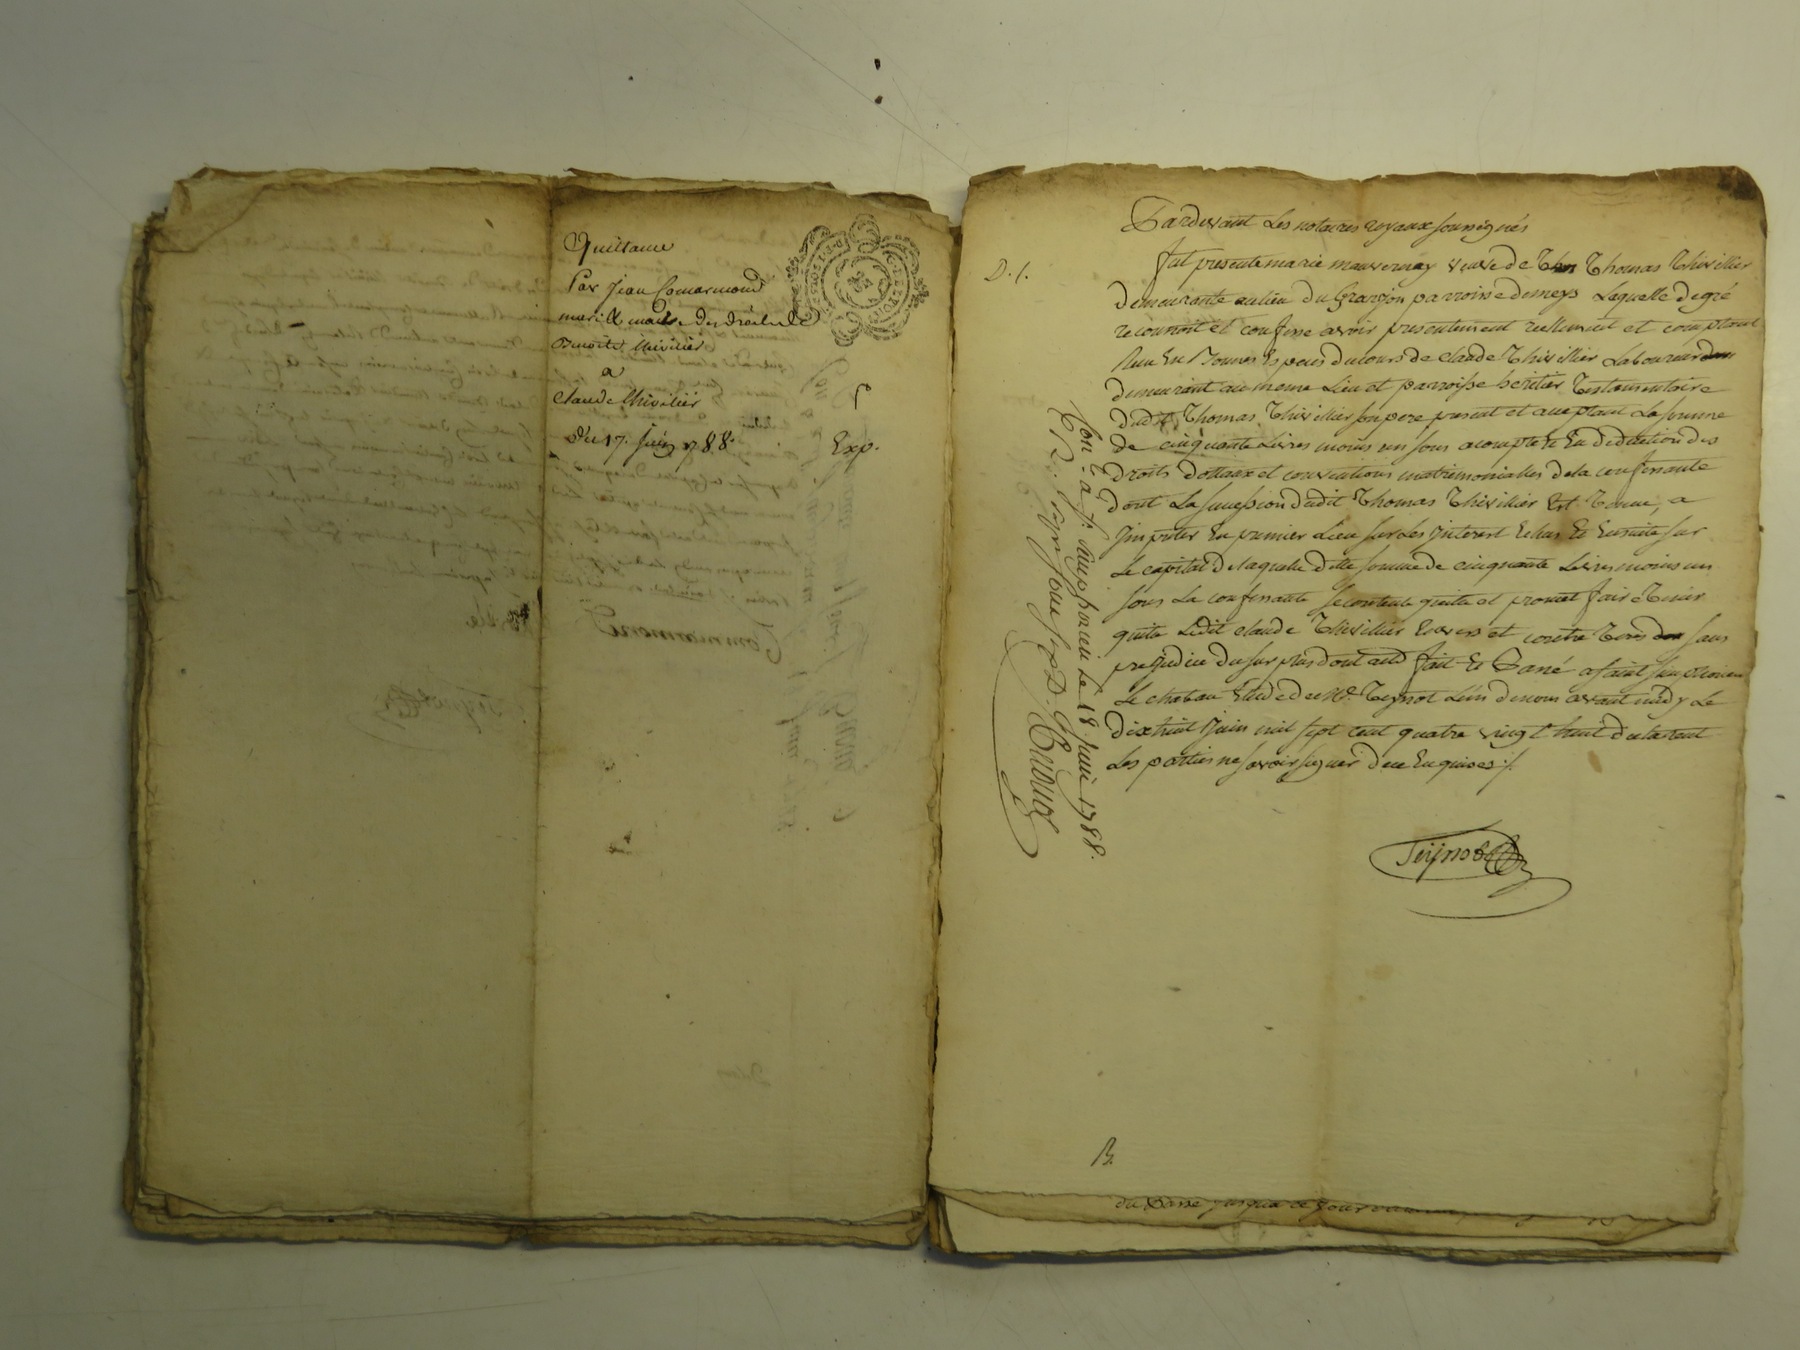 Quittance
Par Jean Comarmond
mari & maitre des droits de
Benoite thivilier
a
Claude thivilier
Du 17. juin 1788.
Exp.
D. f.
Pardevant Les notaires royaux soussignés
fut presente marie mauvernay veuve de Thomas Thivillier
demeurante au lieu du Granjon parroisse de meys Laquelle de gré
reconnoit et confesse avoir presentement reellement et comptant
Reçu En Bonnes Especes du cours de claude Thivillier Laboureur
demeurant au meme Lieu et parroisse heritier Testamentaire
dudit Thomas Thivillier son pere present et acceptant La somme
de cinquante Livres moins un sous acompte & En deduction des
droits dottaux et conventions matrimoniales de la confessante
dont La succession dudit Thomas Thivillier Est Tenue, a
Jmputer En premier Lieu sur Les Jnterest Echus Et Ensuite sur
Le capital de laquelle ditte somme de cinquante Livres moins un
sous La confessante se contente quitte et promet faire Tenir
quitte Ledit claude Thivillier Envers et contre Tous sans
prejudice du surplus dont acte fait Et Passé a saint simphorien
Le chateau Etude de Me. Teynot L'un de nous avant midy Le
dixhuit Juin mil sept cent quatre vingt huit declarent
Les parties ne savoir signer de ce Enquises ./.
Teijnot
Con. à st. simphorien le 18 juin 1788.
B.
du Passé jusqua ce jour